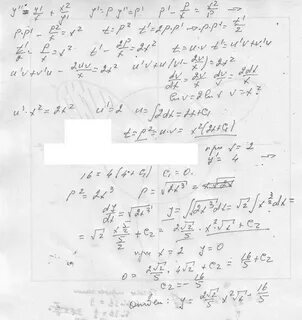 y'' = y'/x + x²/y' y' = p y'' = p' p' - p/x = x²/p →
p·p' - p²/x = x² t = p² t' = 2p·p' → p·p' = t'/2
t'/2 - t/x = x² t' - 2t/x = 2x² t = u·v t' = u'v + v'u
u'v + v'u - 2uv/x = 2x² u'v + u(v' - 2v/x) = 2x²
dv/dx = 2v/x dv/v = 2dx/x
ln v = 2 ln x v = x²
u'·x² = 2x² u' = 2 u = ∫2dx = 2x + C₁
t = p² = u·v = x²(2x + C₁)
при x = 2
y' = 4 →
16 = 4(4 + C₁) C₁ = 0.
p² = 2x³ p = √2x³
dy/dx = √2x³ y = ∫√2x³ dx = √2 ∫x^(3/2) dx =
= √2 x^(5/2)/(5/2) = 2√2/5 · x²√x + C₂
при x = 2 y = 0
0 = 2√2/5 · 4√2 + C₂ = 16/5 + C₂
C₂ = -16/5
Ответ: y = 2√2/5 x²√x - 16/5